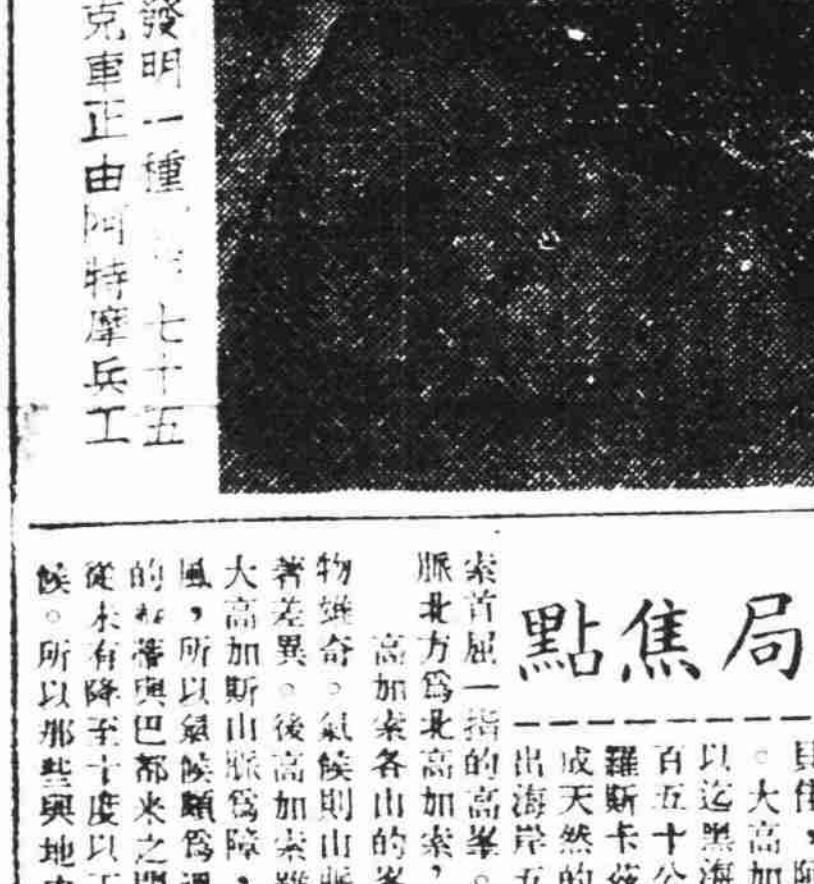 發明一種
七十五
克車正由阿特摩兵工
局焦點
。大高加
以迄黑海
百五十公
羅斯卡茲
成天然的
出海岸五
索首屈一指的高峯。
脈北方爲北高加索，
高加索各山的峯
物雄奇。氣候則山脈
著差異。後高加索雖
大高加斯山脈爲障，
風，所以氣候頗爲溫
的 與巴都米之間
從未有降至十度以下
候。所以那些與地